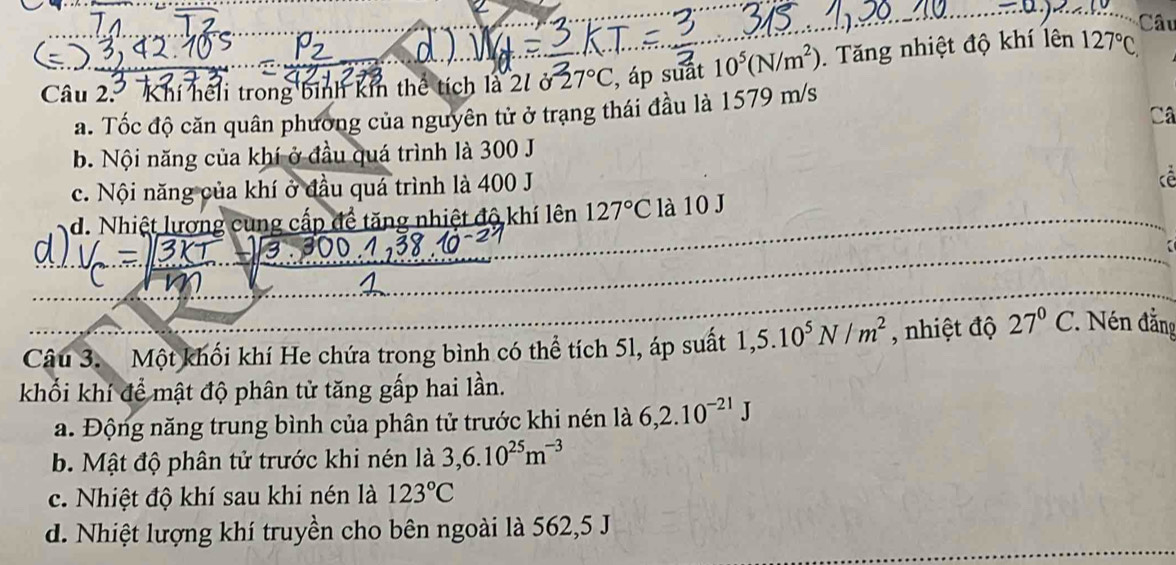 T1 T2
(=) 3,42.10^5 / 3+273 = P2 / 42+273 d) Wđ = 3/2 KT = 3/2 . 315. 1,38 10
Câu
Câu 2. Khí hêli trong bình kín thể tích là 2l ở 27°C, áp suất 10⁵(N/m²). Tăng nhiệt độ khí lên 127°C.
a. Tốc độ căn quân phương của nguyên tử ở trạng thái đầu là 1579 m/s
Câ
b. Nội năng của khí ở đầu quá trình là 300 J
c. Nội năng của khí ở đầu quá trình là 400 J
d. Nhiệt lượng cung cấp để tăng nhiệt độ khí lên 127°C là 10 J
d) Vc = √(3KT / m) = √(3.300.1,38.10⁻²⁹ / 1)
TRAN
Câu 3. Một khối khí He chứa trong bình có thể tích 5l, áp suất 1,5.10⁵ N / m² , nhiệt độ 27⁰ C. Nén đẳng
khối khí để mật độ phân tử tăng gấp hai lần.
a. Động năng trung bình của phân tử trước khi nén là 6,2.10⁻²¹ J
b. Mật độ phân tử trước khi nén là 3,6.10²⁵m⁻³
c. Nhiệt độ khí sau khi nén là 123°C
d. Nhiệt lượng khí truyền cho bên ngoài là 562,5 J